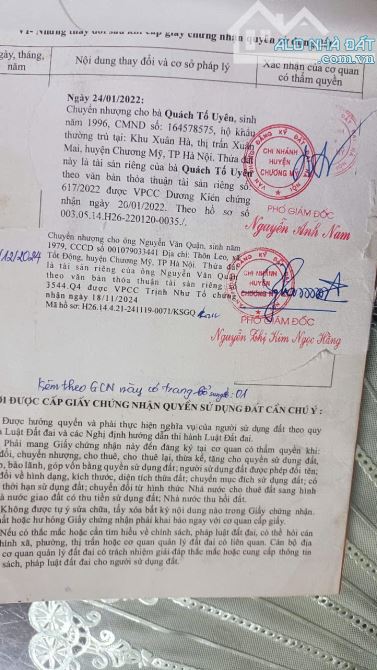 ALO NHÀ ĐẤT
.com.vn
VI- Những thay đổi sau khi cấp giấy chứng nhận quyền sử dụng đất
gày, tháng, năm
Nội dung thay đổi và cơ sở pháp lý
Xác nhận của cơ quan có thẩm quyền
Ngày 24/01/2022:
Chuyển nhượng cho bà Quách Tố Uyên, sinh
năm 1996, CMND số: 164578575, hộ khẩu
thường trú tại: Khu Xuân Hà, thị trấn Xuân
Mai, huyện Chương Mỹ, TP Hà Nội. Thửa đất
này là tài sản riêng của bà Quách Tố Uyên
theo văn bản thỏa thuận tài sản riêng số:
617/2022 được VPCC Dương Kiên chứng
nhận ngày 20/01/2022. Theo hồ sơ số
003.05.14.H26-220120-0035./.
VĂN PHÒNG ĐĂNG KÝ ĐẤT ĐAI
CHI NHÁNH
HUYỆN
CHƯƠNG MỸ
PHÓ GIÁM ĐỐC
Nguyễn Anh Nam
/12/2024
Chuyển nhượng cho ông Nguyễn Văn Quận, sinh năm
1979, CCCD số 001079033441 Địa chỉ: Thôn Leo, xã
Tốt Động, huyện Chương Mỹ, TP Hà Nội. Thửa đất
là tài sản riêng của ông Nguyễn Văn Quận
theo văn bản thỏa thuận tài sản riêng số
3544.Q4 được VPCC Trịnh Như Tố chứng
nhận ngày 18/11/2024
Mã hồ sơ: H26.14.4.21-241119-0071/KSGQ
CHI NHÁNH
HUYỆN
CHƯƠNG MỸ
PHÓ GIÁM ĐỐC
Nguyễn Thị Kim Ngọc Hằng
Kèm theo GCN này có trang bổ sung số: 01
ỜI ĐƯỢC CẤP GIẤY CHỨNG NHẬN QUYỀN SỬ DỤNG ĐẤT CẦN CHÚ Ý :
Được hưởng quyền và phải thực hiện nghĩa vụ của người sử dụng đất theo quy
Luật Đất đai và các Nghị định hướng dẫn thi hành Luật Đất đai.
Phải mang Giấy chứng nhận này đến đăng ký tại cơ quan có thẩm quyền khi:
đổi, chuyển nhượng, cho thuê, cho thuê lại, thừa kế, tặng cho quyền sử dụng đất,
p, bảo lãnh, góp vốn bằng quyền sử dụng đất; người sử dụng đất được phép đổi tên;
đổi về hình dạng, kích thước, diện tích thửa đất; chuyển mục đích sử dụng đất; có
thời hạn sử dụng đất; chuyển đổi từ hình thức Nhà nước cho thuê đất sang hình
à nước giao đất có thu tiền sử dụng đất; Nhà nước thu hồi đất.
Không được tự ý sửa chữa, tẩy xóa bất kỳ nội dung nào trong Giấy chứng nhận.
ất hoặc hư hỏng Giấy chứng nhận phải khai báo ngay với cơ quan cấp giấy.
Nếu có thắc mắc hoặc cần tìm hiểu về chính sách, pháp luật đất đai, có thể hỏi cán
hính xã, phường, thị trấn hoặc cơ quan quản lý đất đai có liên quan. Cán bộ địa
cơ quan quản lý đất đai có trách nhiệm giải đáp thắc mắc hoặc cung cấp thông tin
sách, pháp luật đất đai cho người sử dụng đất.